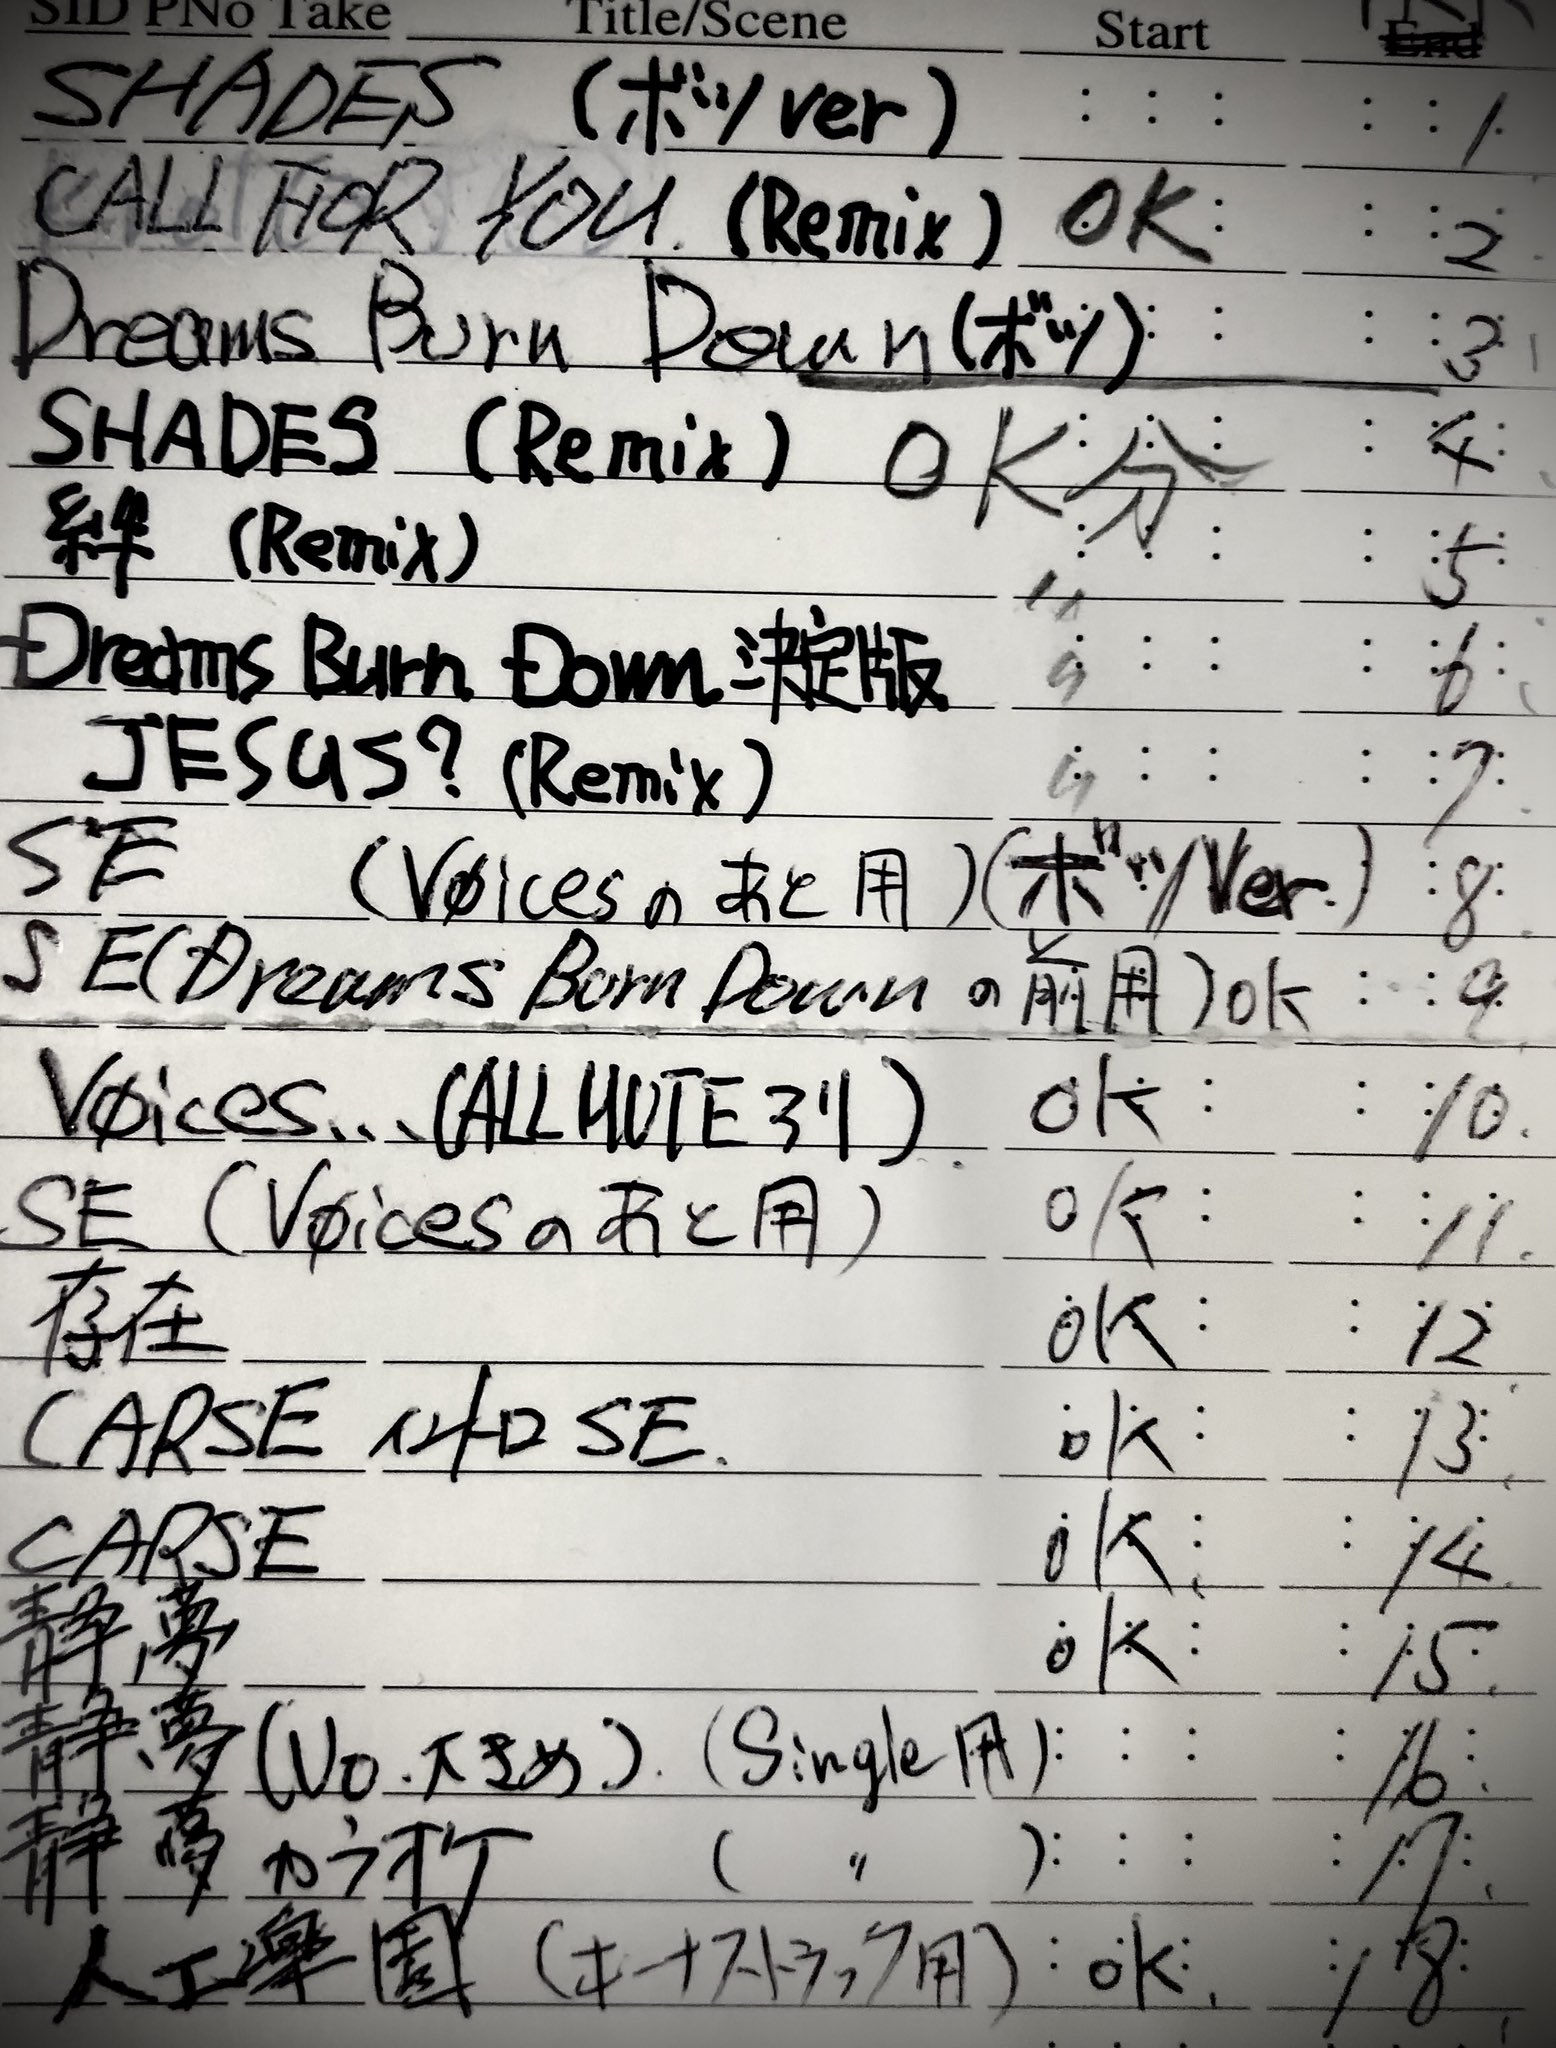 SID PNo Take Title/Scene Start End
SHADES (ボツver) 1.
CALL FOR YOU. (Remix) OK 2.
Dreams Burn Down (ボツ) 3
SHADES (Remix) OK分 4.
絆 (Remix) 〃 5.
Dreams Burn Down 決定版 〃 6.
JESUS? (Remix) 〃 7.
SE (Vøicesのあと用) (ボツVer.) 8.
SE (Dreams Burn Downの前用) OK 9.
Vøices... (ALL MUTE ヨリ) OK 10.
SE (Vøicesのあと用) OK 11.
存在 OK 12
CARSE イントロSE. OK 13.
CARSE OK 14.
静夢 OK 15.
静夢 (Vo.大きめ). (Single用) 16.
静夢 カラオケ ( 〃 ) 17.
人工楽園 (ボーナストラック用) OK. 18.